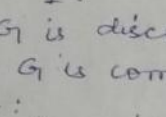 G is disc
G is com
: